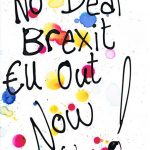 No Deal
Brexit
EU Out
Now !